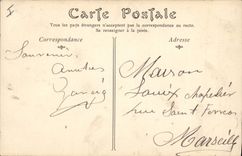 Carte Postale
Tous les pays étrangers n'acceptent pas la correspondance au recto.
Se renseigner à la poste.
Correspondance
Adresse
Souvenir
Amitiés
Maison
chapelier
rue Saint Ferréol
Marseille